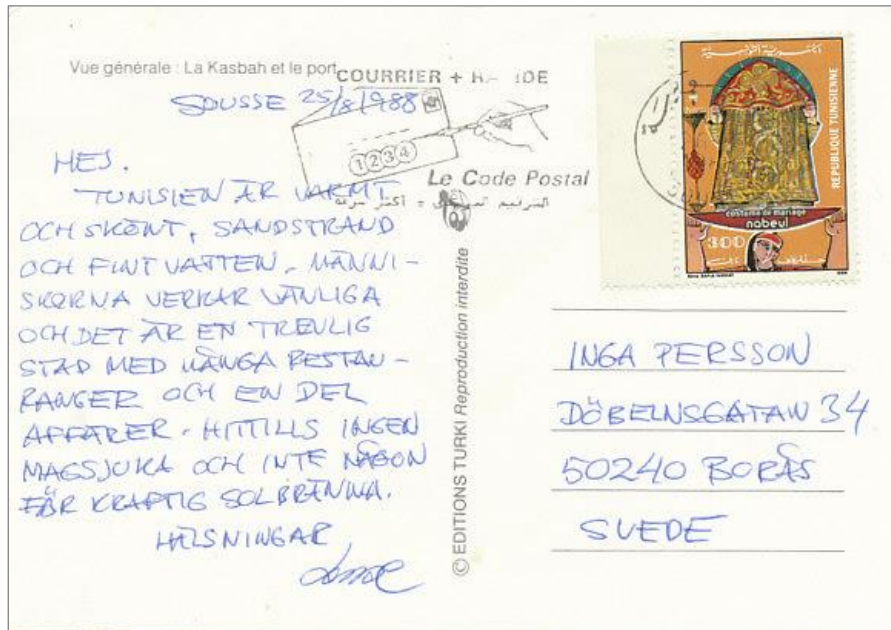 Vue générale : La Kasbah et le port
SOUSSE 25/8 1988
COURRIER + RAPIDE
1234
Le Code Postal
الترقيم البريدي = أكثر سرعة
HEJ.
TUNISIEN ÄR VARMT
OCH SKÖNT, SANDSTRAND
OCH FINT VATTEN. MÄNNI-
SKORNA VERKAR VÄNLIGA
OCH DET ÄR EN TREVLIG
STAD MED MÅNGA RESTAU-
RANGER OCH EN DEL
AFFÄRER. HITTILLS INGEN
MAGSJUKA OCH INTE NÅGON
FÖR KRAFTIG SOLBRÄNNA.
HÄLSNINGAR
© EDITIONS TURKI Reproduction interdite
الجمهورية التونسية
REPUBLIQUE TUNISIENNE
costume de mariage
nabeul
300
INGA PERSSON
DÖBELNSGATAN 34
50240 BORÅS
SUEDE